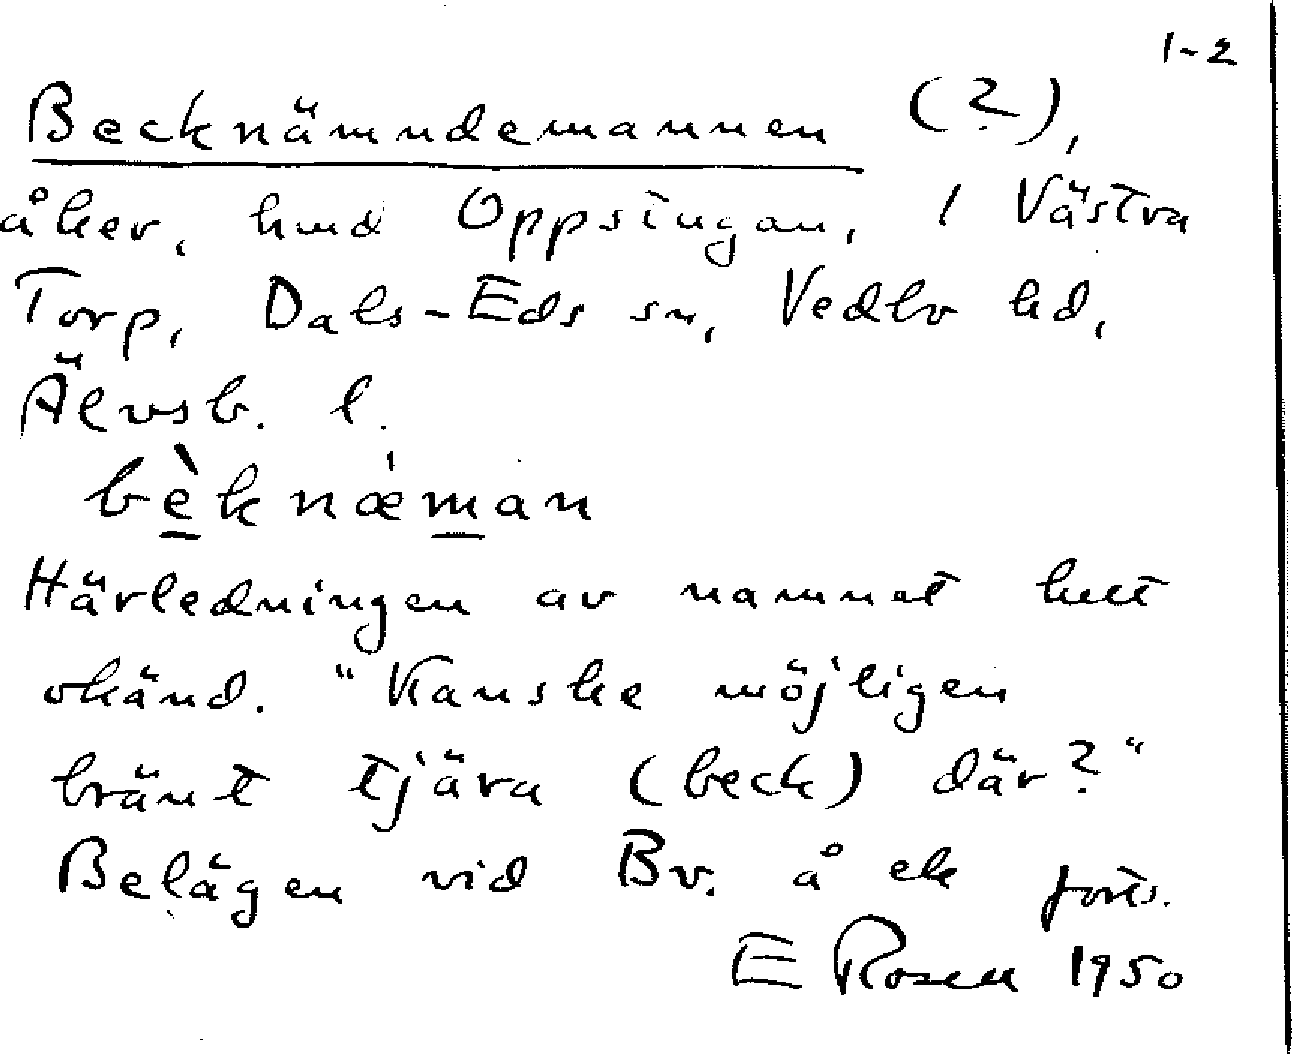 1-2
Becknämndemannen (?),
åker, hmd Oppsingan, 1 Västra
Torp, Dals-Eds sn, Vedbo hd,
Älvsb. l.
bèknæ̀man
Härledningen av namnet helt
okänd. "Kanske möjligen
bränt tjära (beck) där?"
Belägen vid Bv. å ek forts.
E Rosen 1950